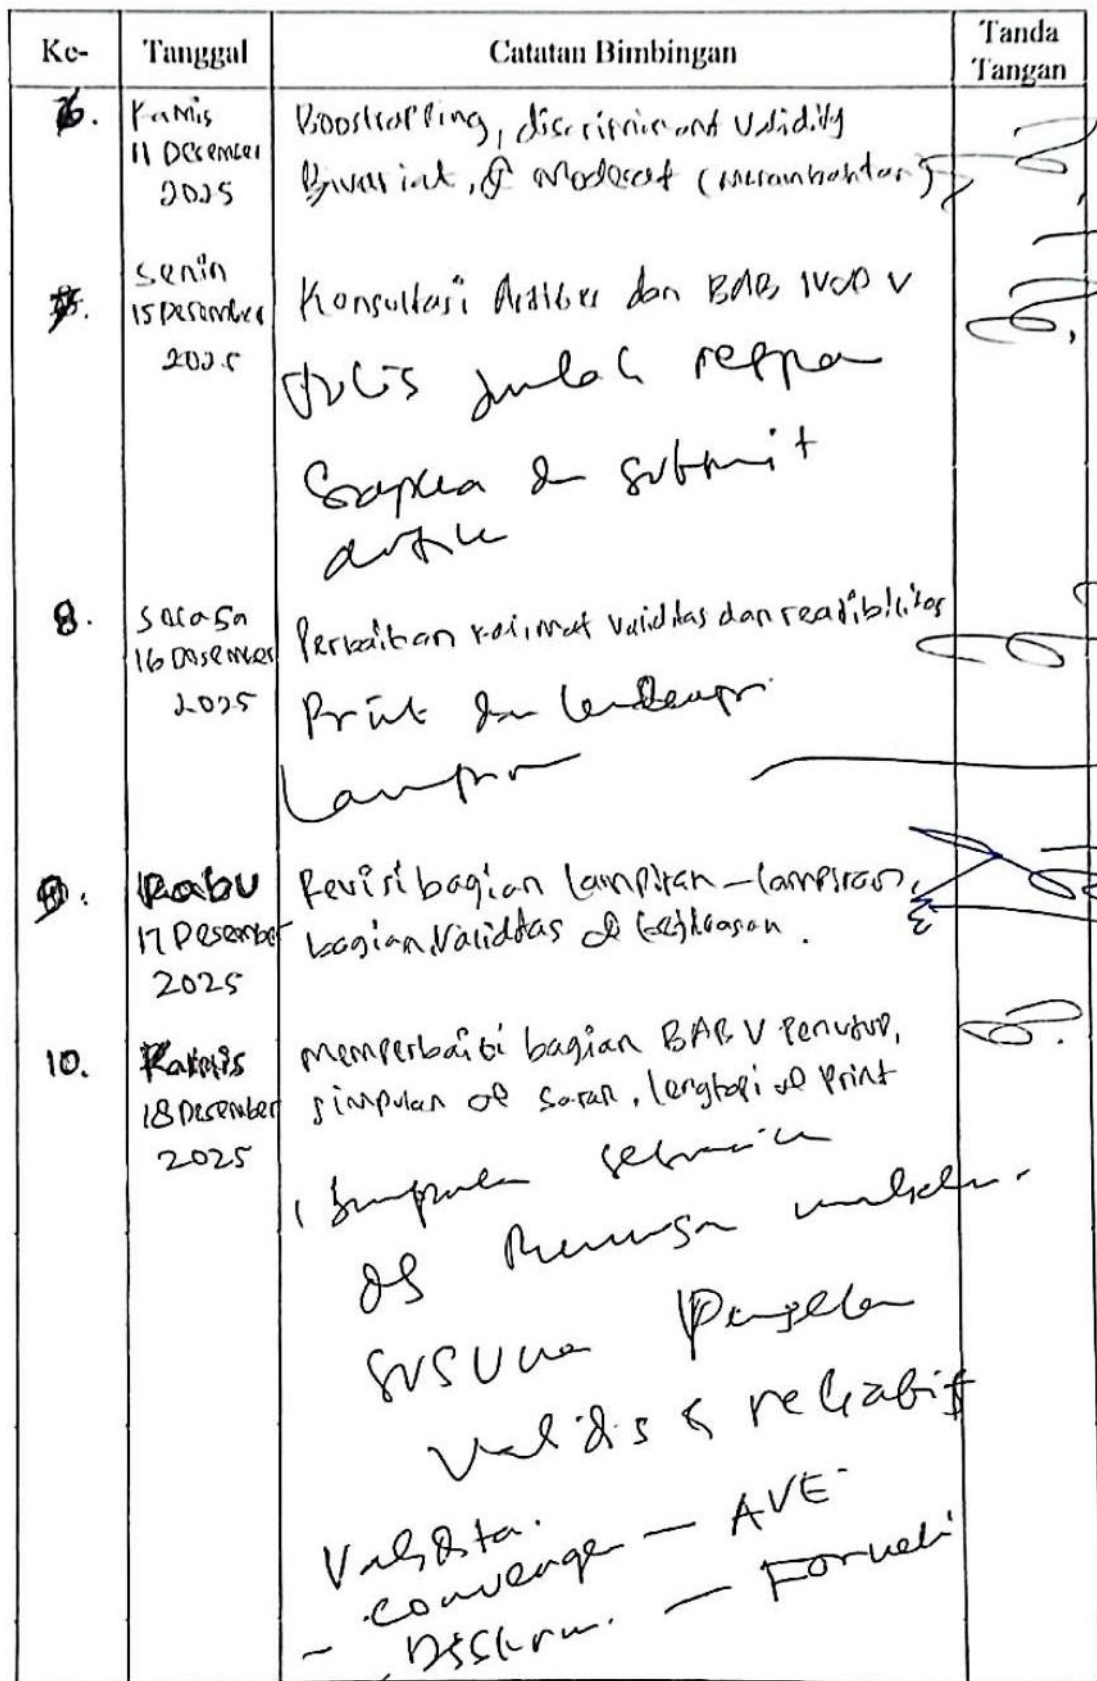 Ke- Tanggal Catatan Bimbingan Tanda Tangan
6. Kamis 11 Desember 2025
Boostrapping, discriminant validity
Bivariat, & Moderat (menambahkan)
7. Senin 15 Desember 2025
Konsultasi Artikel dan BAB IV & V
Tulis jumlah
Siapkan dan submit
artikel
8. Selasa 16 Desember 2025
Perbaikan kalimat validitas dan readibilitas
Print dan lengkapi
Lampiran
9. Rabu 17 Desember 2025
Revisi bagian lampiran-lampiran,
bagian Validitas &
10. Kamis 18 Desember 2025
memperbaiki bagian BAB V Penutup,
simpulan & saran, lengkapi & print
Simpulan sesuaikan
dg Rumusan masalah.
Susunan
Validis & reliabif
Validita.
- Convergen — AVE
- Diskrim. — Fornell